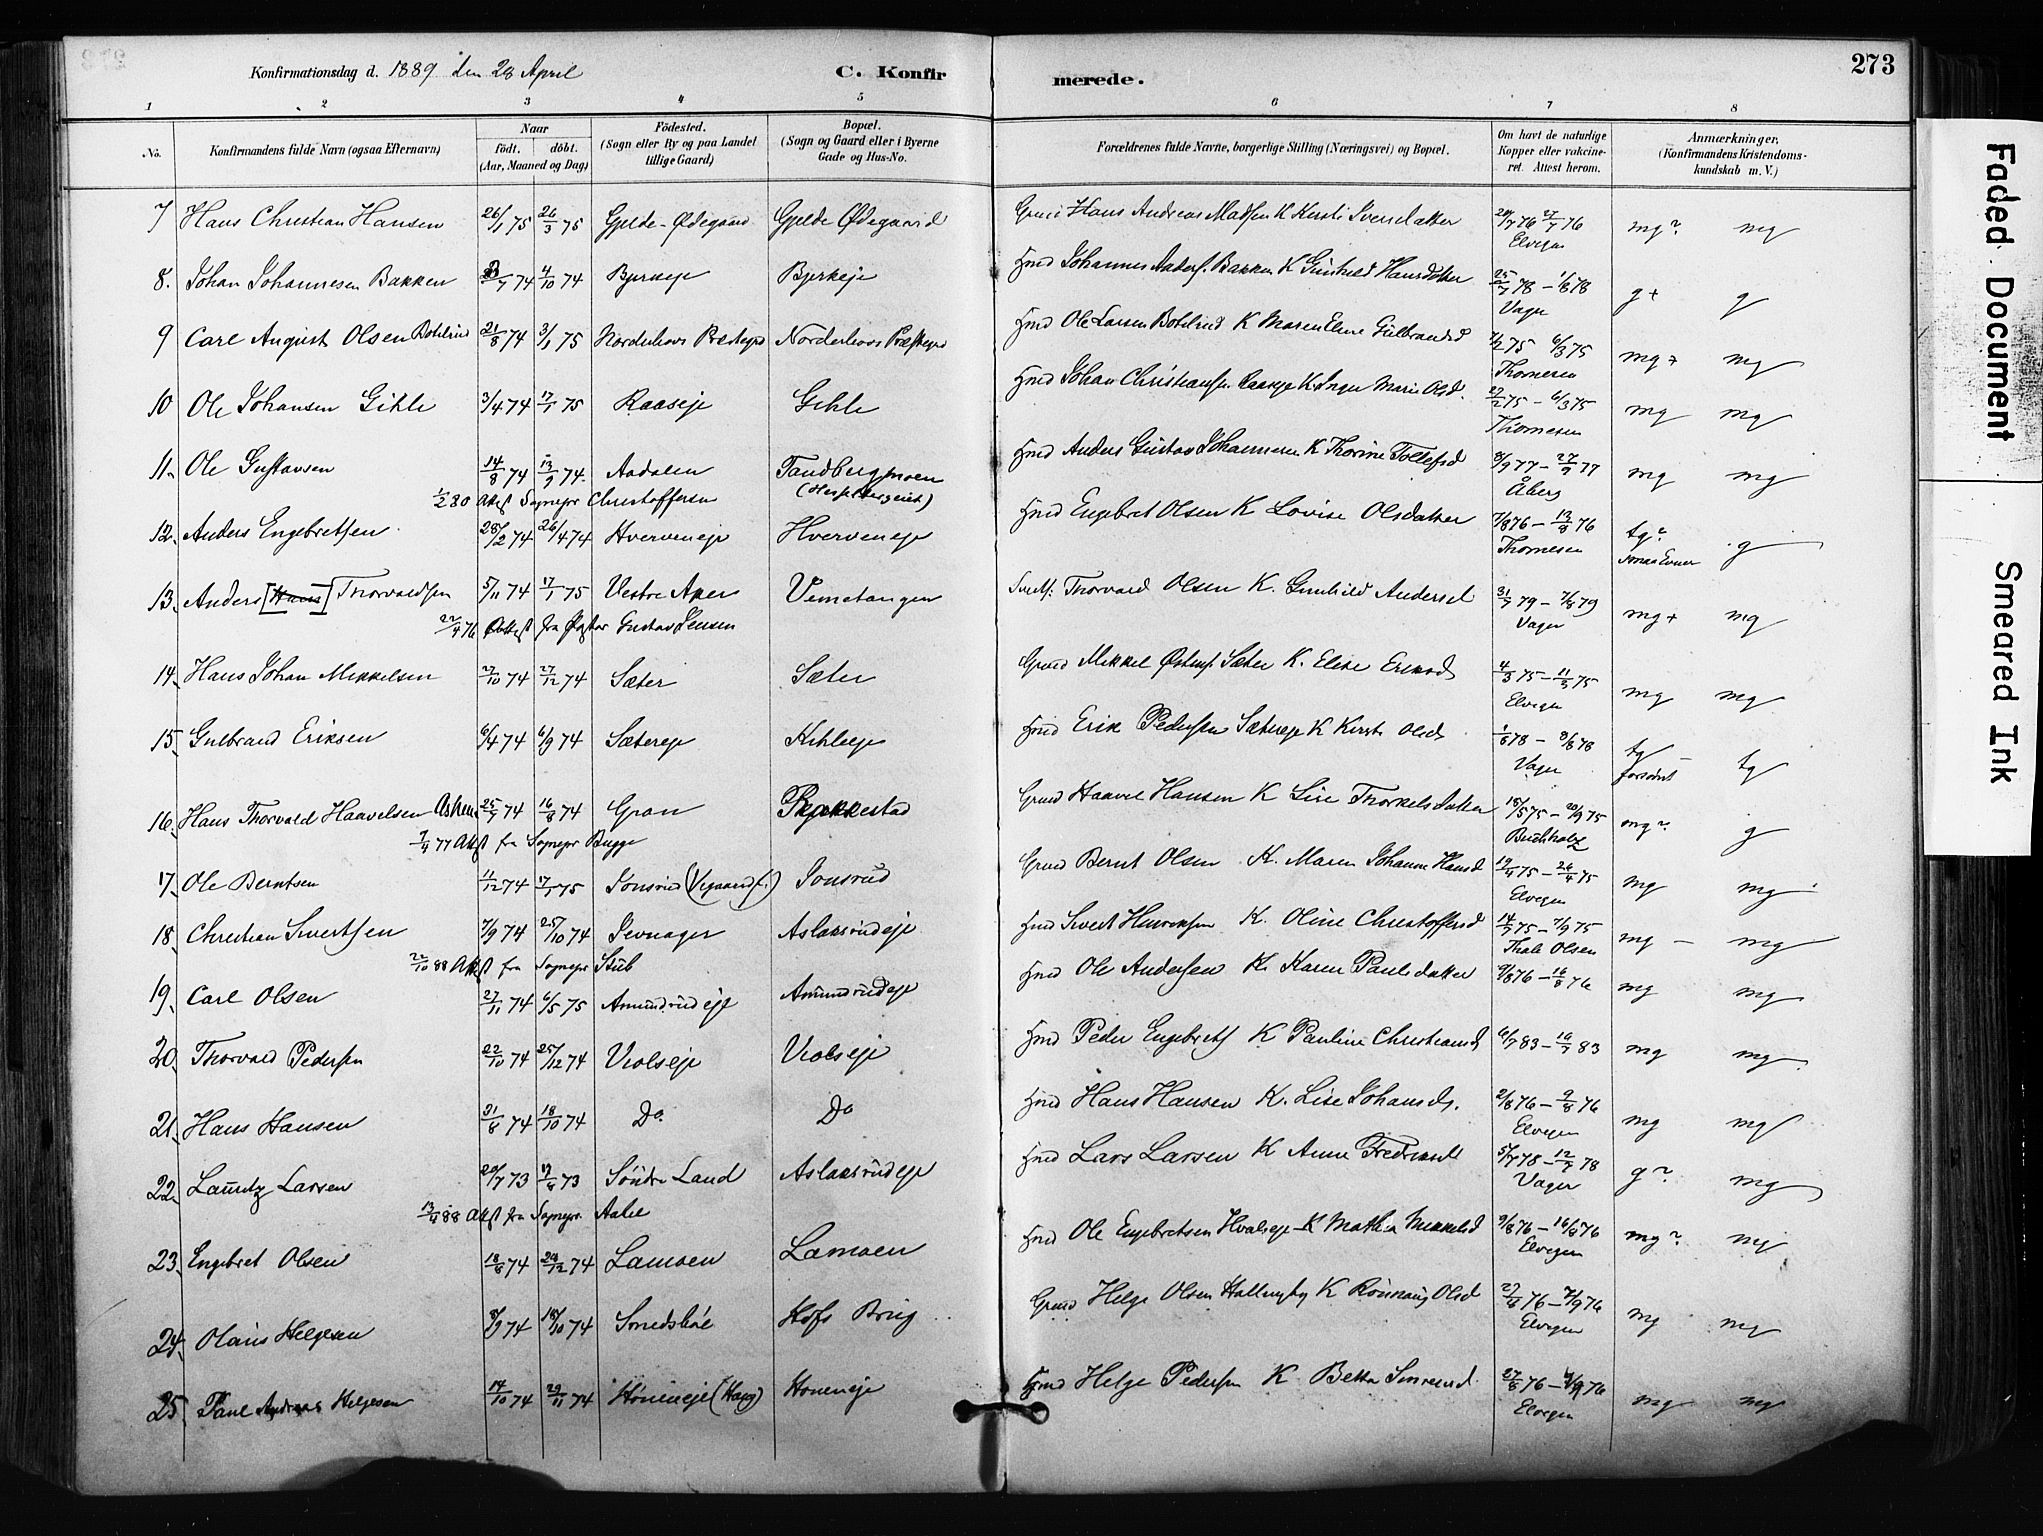 Konfirmationsdag d. 1889 den 28 April
C. Konfirmerede.
273
1 2 3 4 5 6 7 8
No.
Konfirmandens fulde Navn (ogsaa Efternavn)
Naar
födt. döbt.
(Aar, Maaned og Dag)
Födested.
(Sogn eller By og paa Landet
tillige Gaard)
Bopæl.
(Sogn og Gaard eller i Byerne
Gade og Hus-No.
Forældrenes fulde Navne, borgerlige Stilling (Næringsvei) og Bopæl.
Om havt de naturlige
Kopper eller vakcine-
ret. Attest herom.
Anmærkninger,
(Konfirmandens Kristendoms-
kundskab m. V.)
7 Hans Christian Hansen 26/1 75 26/3 75 Gjelde-Ødegaard Gjelde Ødegaard Hans Andreas Madsen K Kersti Iversdatter 20/7 76 27/7 76 mg? mg
Elvegen
8. Johan Johannesen Bakken /7 74 4/10 74 Bjerkeje Bjerkeje Hmd Johannes Anders. Bakken K Gunhild Hansdatter 25/7 78 - 1/8 78 g+ g
Vager
9 Carl August Olsen Botilrud 21/8 74 3/1 75 Norderhovs Præstegd Norderhovs Præstegd Hmd Ole Larsen Botilrud K Maren Eline Gulbrandsd 7/2 75 6/3 75 mg+ mg
Thornesen
10 Ole Johansen Gihle 3/4 74 17/1 75 Raaseje Gihle Hmd Johan Christiansen Raaseje K Inger Marie Olsd. 27/2 75 - 6/3 75 mg mg
Thornesen
11. Ole Gustavsen 14/8 74 13/9 74. Aadalen Tandbergmoen Hmd Anders Gustav Johannesen K Thorine Tollefsd 8/9 77 - 27/9 77 mg mg
1/2 80 Attest Sognepr Christoffersen Åberg
12. Anders Engebretsen 28/2 74 26/4 74 Hverveneje Hverveneje Hmd Engebret Olsen K Lovise Olsdatter 7/8 76 - 13/8 76 tg? g
Thornesen
13. Anders [Hans] Thorvaldsen 5/11 74 17/1 75 Vestre Aker Vemetangen Thorvald Olsen K. Gunhild Andersd 31/7 79 - 7/8 79 mg+ mg
22/4 76 Attest fra Gustav Jensen Vager
14. Hans Johan Mikkelsen 27/10 74 27/12 74 Sæter Sæter Grmd Mikkel Østens. Sæter K. Elise Eriksd 4/3 75 - 11/3 75 mg mg
Elvegen
15. Gulbrand Eriksen 6/4 74 6/9 74 Sætereje Kihleeje Hmd Erik Pedersen Sætereje K Kersti Olsd 1/8 78 - 8/8 78 tg tg
Vager forsömt
16. Hans Thorvald Haavelsen Askeru 25/7 74 16/8 74 Gran Pjakkestad Grmd Haavel Hansen K Lise Thorkelsdatter 18/5 75 - 20/9 75 mg? g
7/4 77 Attest fra Sognepr Bugge Buchholz
17. Ole Berntsen 11/12 74 17/1 75 Jonsrud (Vegaard f.) Jonsrud Grmd Bernt Olsen K. Maren Johanne Hansd 19/4 75 - 26/4 75 mg mg
Elvegen
18. Christian Sivertsen 7/9 74 25/10 74 Jevnager Aslaksrudeje Hmd Sivert Henriksen K. Oline Christoffersd 14/7 75 - 7/9 75 mg - mg
22/10 88 Attest fra Sognepr Stub Thale Olsen
19. Carl Olsen 27/11 74 6/5 75 Amundrudeje Amundrudeje Hmd Ole Andersen K. Karen Paulsdatter 9/8 76 - 16/8 76 mg mg
20. Thorvald Pedersen 22/10 74 25/12 74 Veolseje Veolseje Hmd Peder Engebrets K Pauline Christiansd 6/7 83 - 16/7 83 mg mg
21. Hans Hansen 31/8 74 18/10 74 Do. Do Hmd Hans Hansen K. Lise Johansd. 2/8 76 - 9/8 76 mg mg
Elvegen
22. Lauritz Larsen 20/7 73 17/8 73 Söndre Land Aslaksrudeje Hmd Lars Larsen K Anne Fredriksd 5/7 78 - 12/7 78 g? mg
13/4 88 Attest fra Sognepr. Aabel Vager
23. Engebret Olsen 18/8 74 20/12 74 Lamoen Lamoen Hmd Ole Engebretsen Hvalseje K Mathea Mikkelsd 9/8 76 - 16/8 76 mg? mg
Elvegen
24. Olaus Helgesen 8/9 74 18/10 74 Smedsböl Hofs Brug Grmd Helge Olsen Hallingby K Rönnaug Olsd 27/8 76 - 7/9 76 mg mg
Elvegen
25. Paul Andreas Helgesen 14/10 74 29/11 74 Höneneje (Haug) Honeneje Hmd Helge Pedersen K Betha Sivertsd. 27/8 76 - 4/9 76 mg mg
Elvegen
Faded Document
Smeared Ink